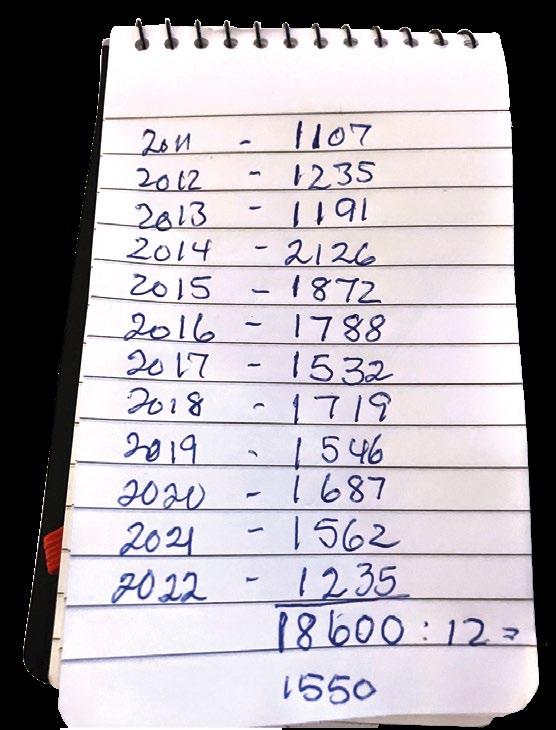 2011 - 1107
2012 - 1235
2013 - 1191
2014 - 2126
2015 - 1872
2016 - 1788
2017 - 1532
2018 - 1719
2019 - 1546
2020 - 1687
2021 - 1562
2022 - 1235
18600 : 12 =
1550